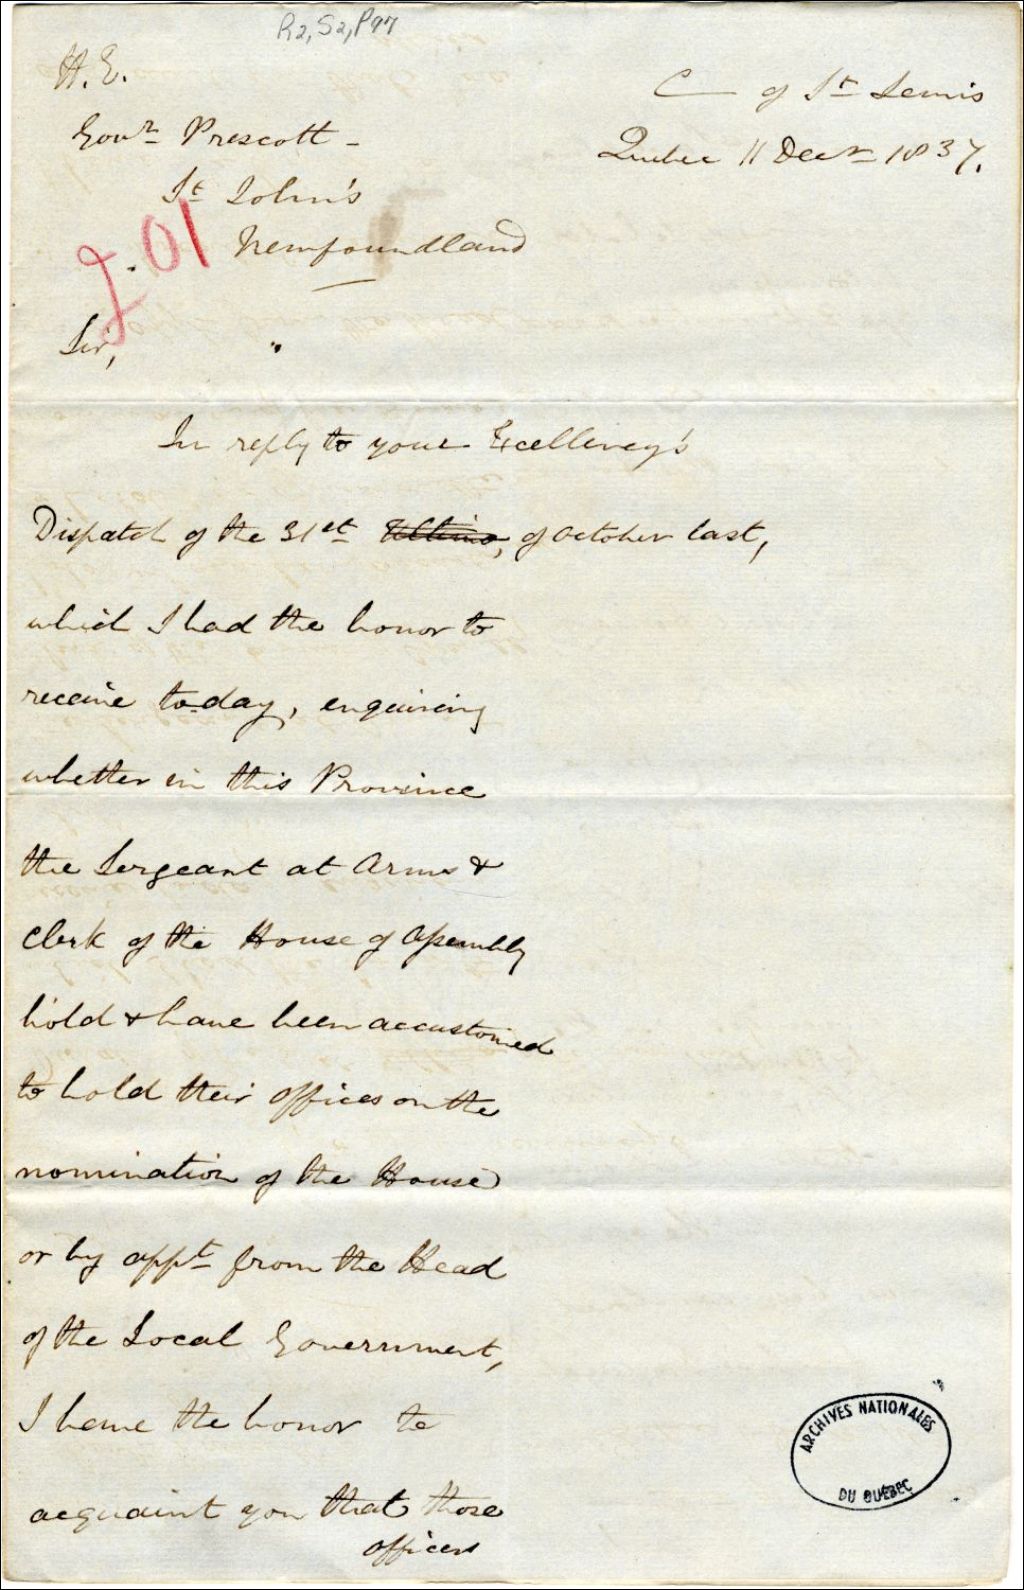 R2, S2, P97
H. E.
Govr. Prescott -
St John's
Newfoundland
C of St Lewis
Quebec 11 Decr 1837.
Sir,
In reply to your Excellency's
Dispatch of the 31st Ultimo, of October last,
which I had the honor to
receive to-day, enquiring
whether in this Province
the Sergeant at Arms &
Clerk of the House of Assembly
hold & have been accustomed
to hold their offices on the
nomination of the House
or by appt from the Head
of the Local Government,
I have the honor to
acquaint you that those
officers
ARCHIVES NATIONALES
DU QUÉBEC